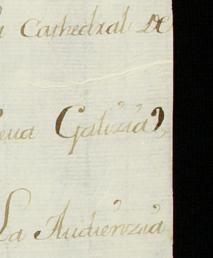 Cathedral De
Galizia,
La Audienzia